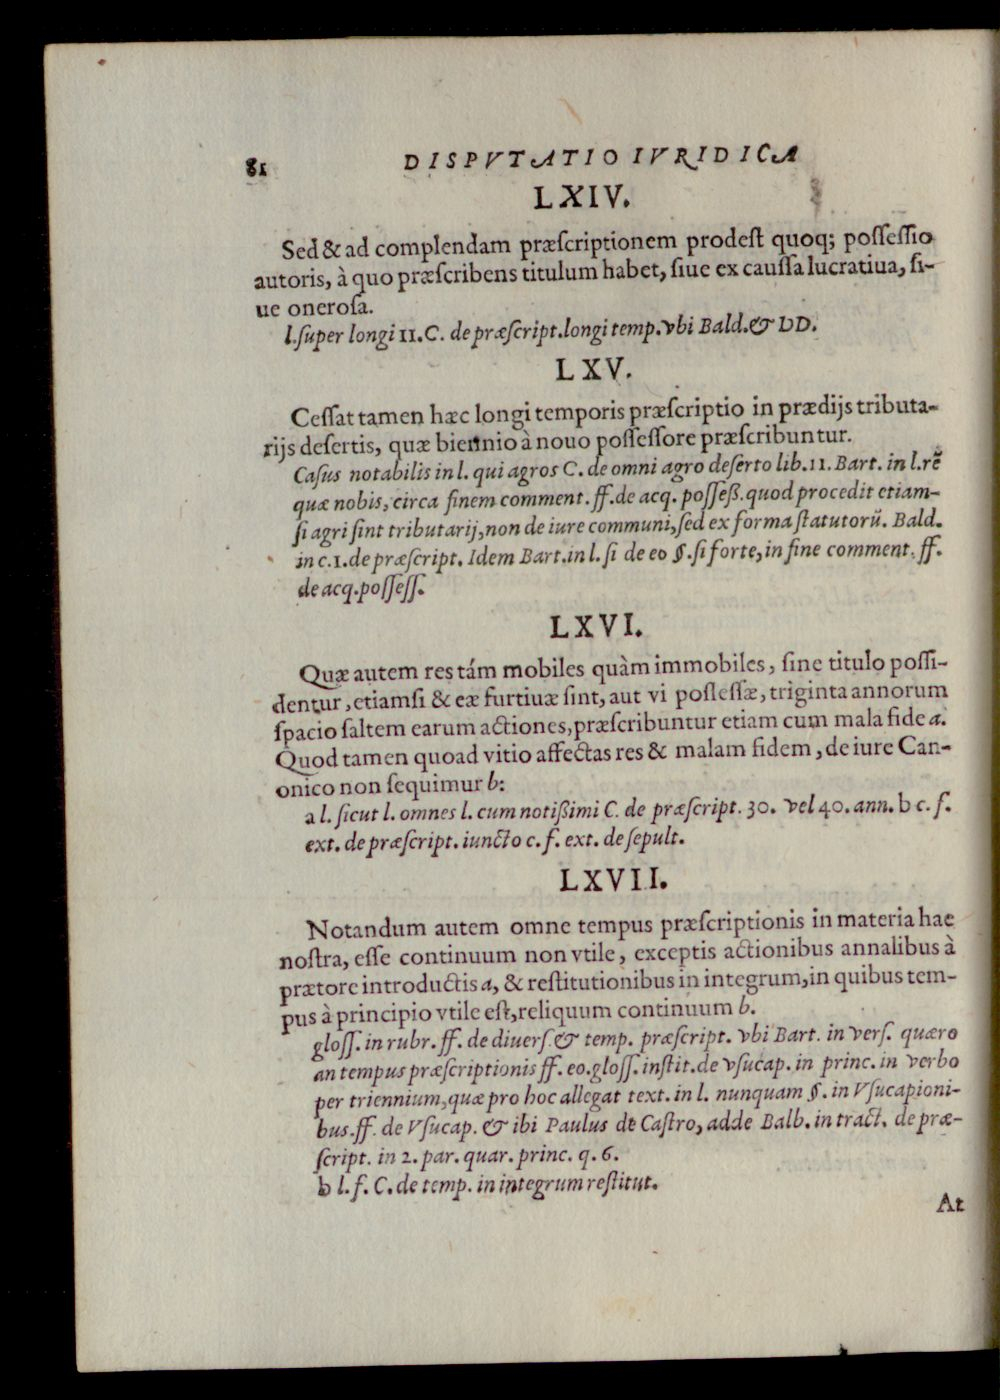 81 DISPVTATIO IVRIDICA
LXIV.
Sed & ad complendam præſcriptionem prodeſt quoq; poſſeſſio
autoris, à quo præſcribens titulum habet, ſiue ex cauſſa lucratiua, ſi-
ue oneroſa.
l. ſuper longi 11. C. de præſcript. longi temp. vbi Bald. & DD.
LXV.
Ceſſat tamen hæc longi temporis præſcriptio in prædijs tributa-
rijs deſertis, quæ biennio à nouo poſſeſſore præſcribuntur.
Caſus notabilis in l. qui agros C. de omni agro deſerto lib. 11. Bart. in l. rē
quæ nobis, circa finem comment. ff. de acq. poſſeß. quod procedit etiam-
ſi agri ſint tributarij, non de iure communi, ſed ex forma ſtatutorū. Bald.
in c. 1. de præſcript. Idem Bart. in l. ſi de eo §. ſi forte, in fine comment. ff.
de acq. poſſeſſ.
LXVI.
Quæ autem res tám mobiles quàm immobiles, ſine titulo poſſi-
dentur, etiamſi & eæ furtiuæ ſint, aut vi poſſeſſæ, triginta annorum
ſpacio ſaltem earum actiones, præſcribuntur etiam cum mala fide a.
Quod tamen quoad vitio affectas res & malam fidem, de iure Can-
onico non ſequimur b:
a l. ſicut l. omnes l. cum notißimi C. de præſcript. 30. vel 40. ann. b c. f.
ext. de præſcript. iuncto c. f. ext. de ſepult.
LXVII.
Notandum autem omne tempus præſcriptionis in materia hac
noſtra, eſſe continuum non vtile, exceptis actionibus annalibus à
prætore introductis a, & reſtitutionibus in integrum, in quibus tem-
pus à principio vtile eſt, reliquum continuum b.
gloſſ. in rubr. ff. de diuerſ. & temp. præſcript. vbi Bart. in verſ. quæro
an tempus præſcriptionis ff. eo. gloſſ. inſtit. de vſucap. in princ. in verbo
per triennium, quæ pro hoc allegat text. in l. nunquam §. in Vſucapioni-
bus. ff. de Vſucap. & ibi Paulus de Caſtro, adde Balb. in tract. de præ-
ſcript. in 2. par. quar. princ. q. 6.
b l. f. C. de temp. in integrum reſtitut.
At